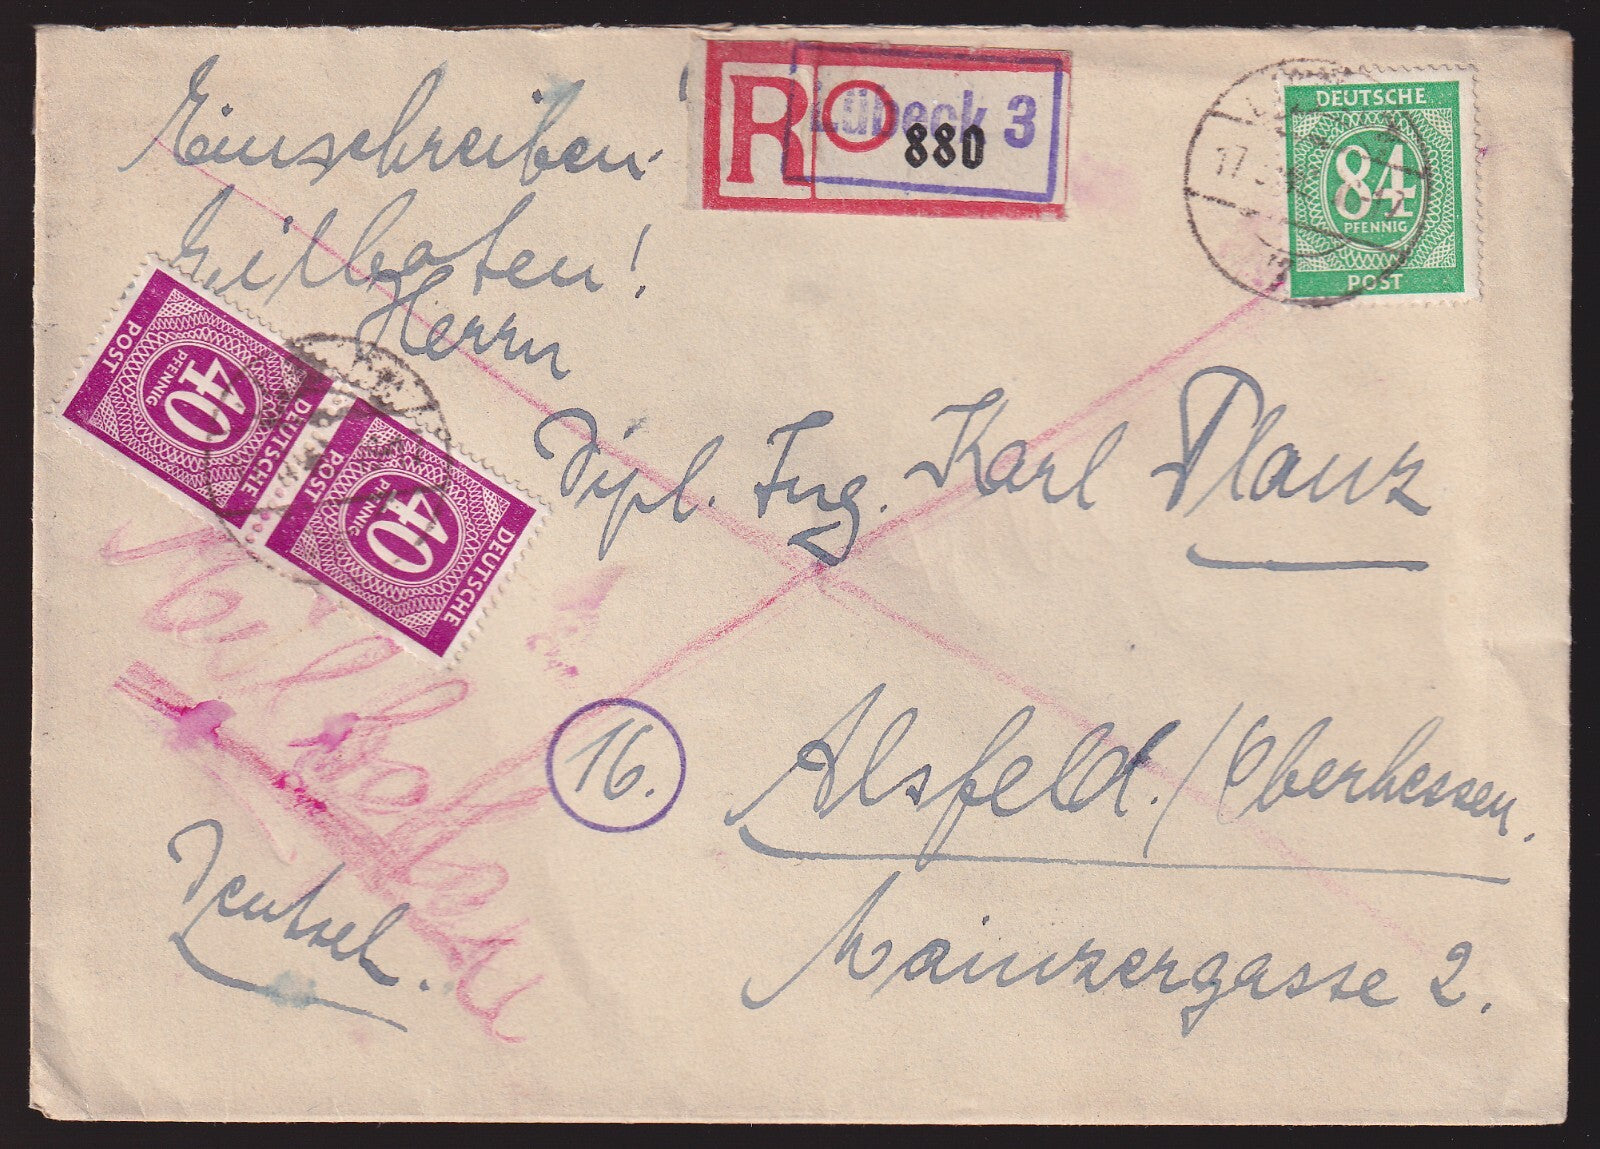 Einschreiben!
Eilboten!
R
Lübeck 3
880
DEUTSCHE
84
PFENNIG
POST
17.
DEUTSCHE
40
PFENNIG
POST
DEUTSCHE
40
PFENNIG
POST
Herrn
Dipl. Ing. Karl Planz
Eilboten
16.
Alsfeld./Oberhessen.
Mainzergasse 2.
Deutschl.